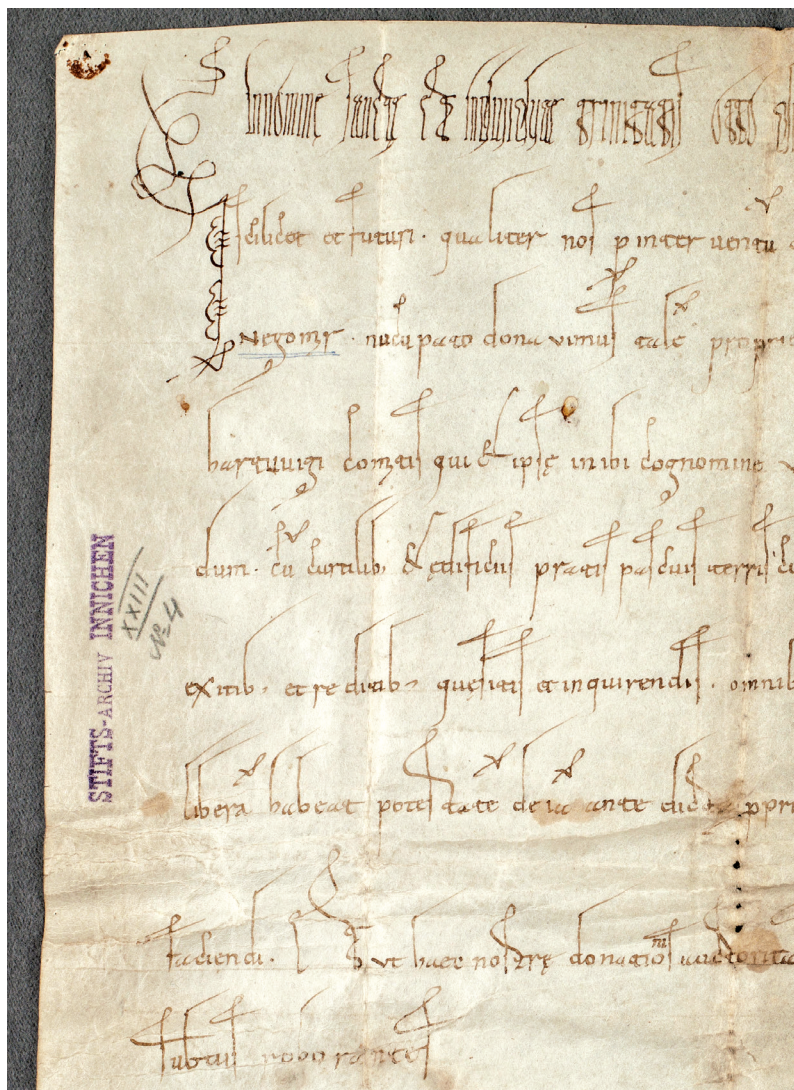 In nomine sanctae et indiuiduae trinitatis Otto
scilicet et futuri · qualiter nos p interuentū
Negomir · nūcupato donauimus tale propri
hartuuigi comitis qui & ipsę inibi cognomine
cū curtilib· & ędificiis pratis pascuis terris
exitib· et reditib· quęsitis et inquirendis · omnib
liberā habeat potestatē de iā ante ppri
faciendi · Et ut haec nostrę donationis auctorita
subtus roburantes
STIFTS-ARCHIV INNICHEN
XXIII
№ 4